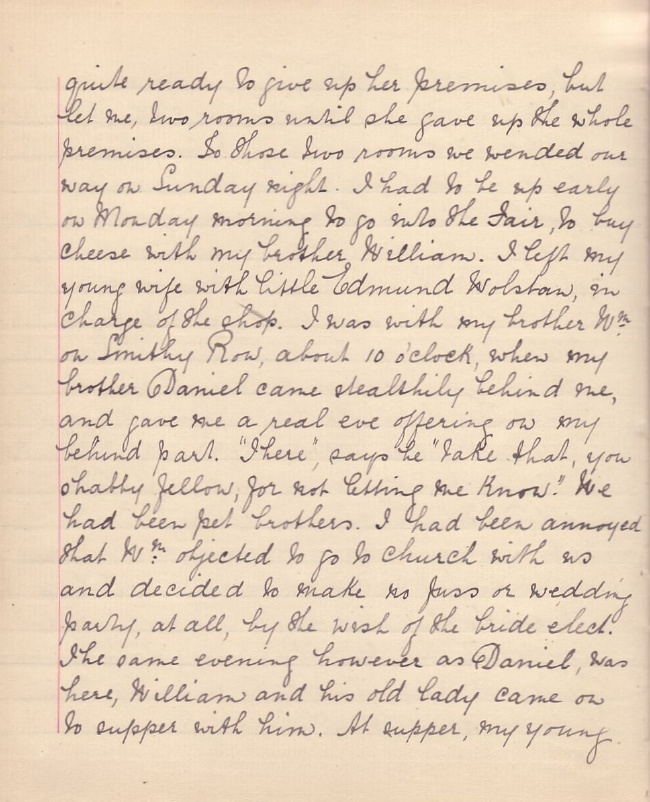 quite ready to give up her premises, but
let me, two rooms until she gave up the whole
premises. To those two rooms we wended our
way on Sunday night. I had to be up early
on Monday morning to go into the Fair, to buy
cheese with my brother William. I left my
young wife with little Edmund Wolstan, in
charge of the shop. I was with my brother Wm
on Smithy Row, about 10 o'clock, when my
brother Daniel came stealthily behind me,
and gave me a real eve offering on my
behind part. "There", says he "take that, you
shabby fellow, for not letting me know." We
had been pet brothers. I had been annoyed
that Wm objected to go to church with us
and decided to make no fuss or wedding
party, at all, by the wish of the bride elect.
The same evening however as Daniel, was
here, William and his old lady came on
to supper with him. At supper, my young